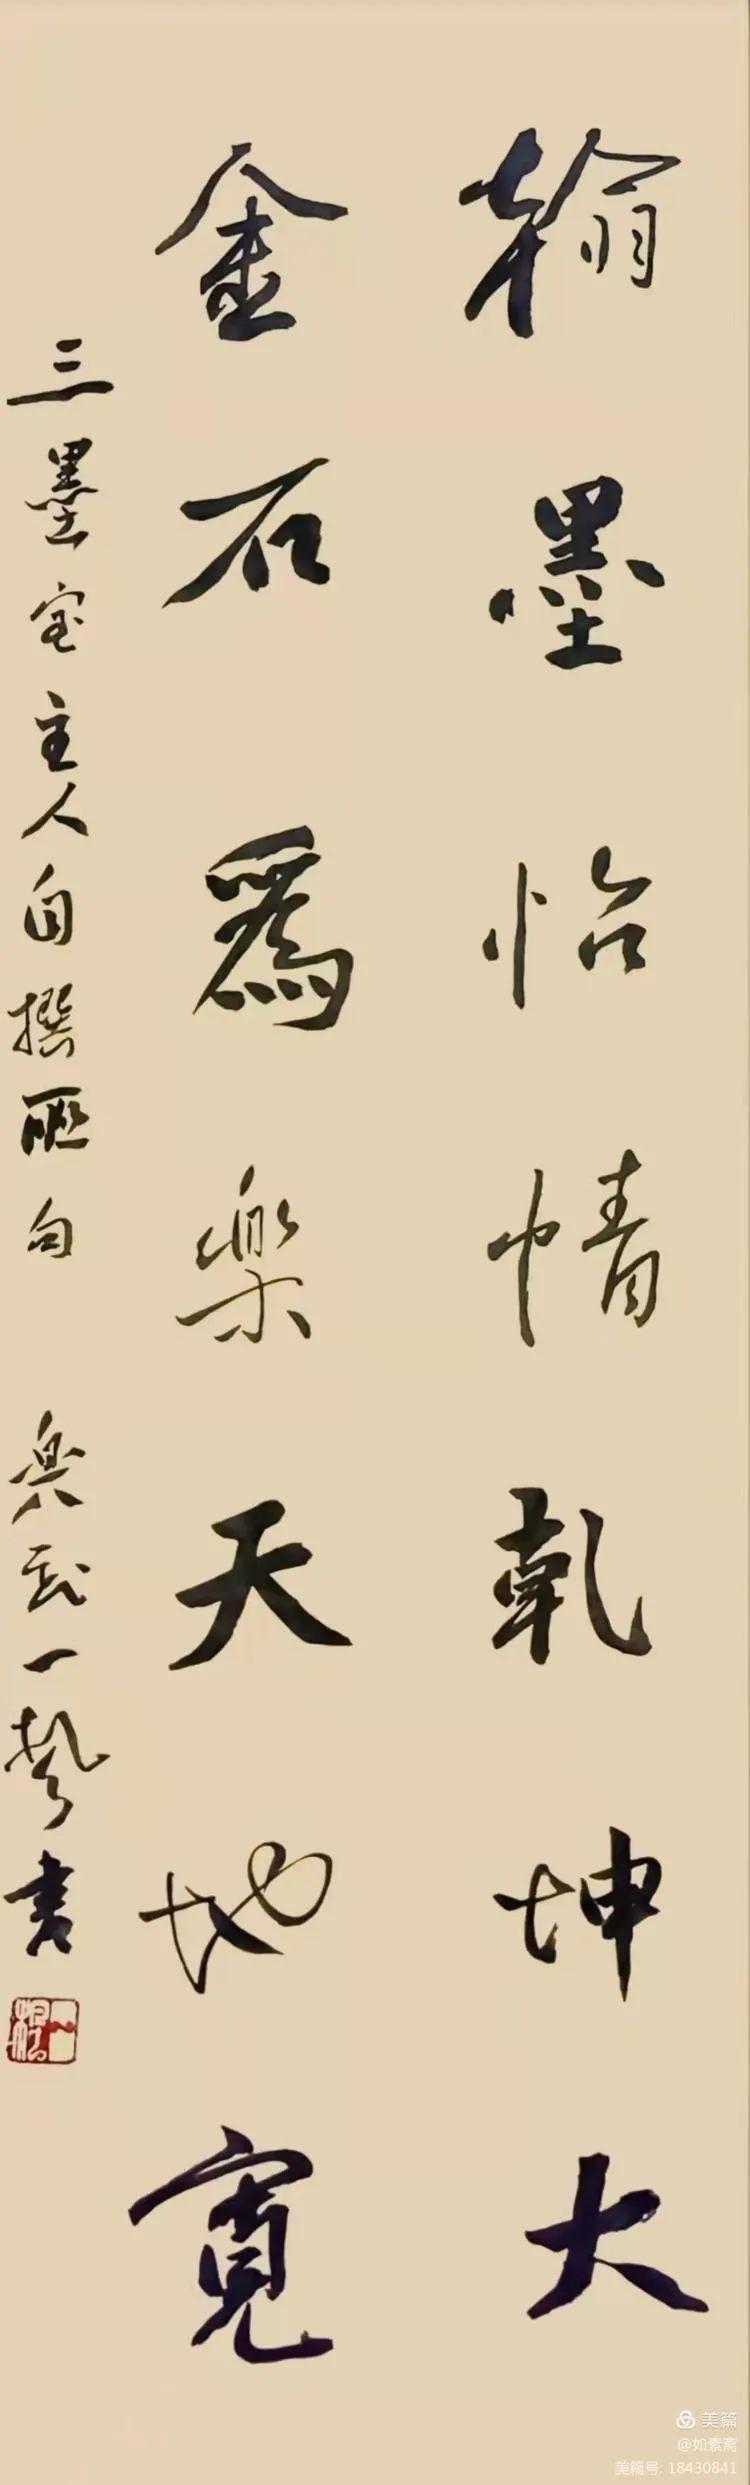 翰墨怡情乾坤大
金石為樂天地寬
三墨室主人自撰聯句 興武一聲書
美篇
@如素斋
美篇号: 18430841